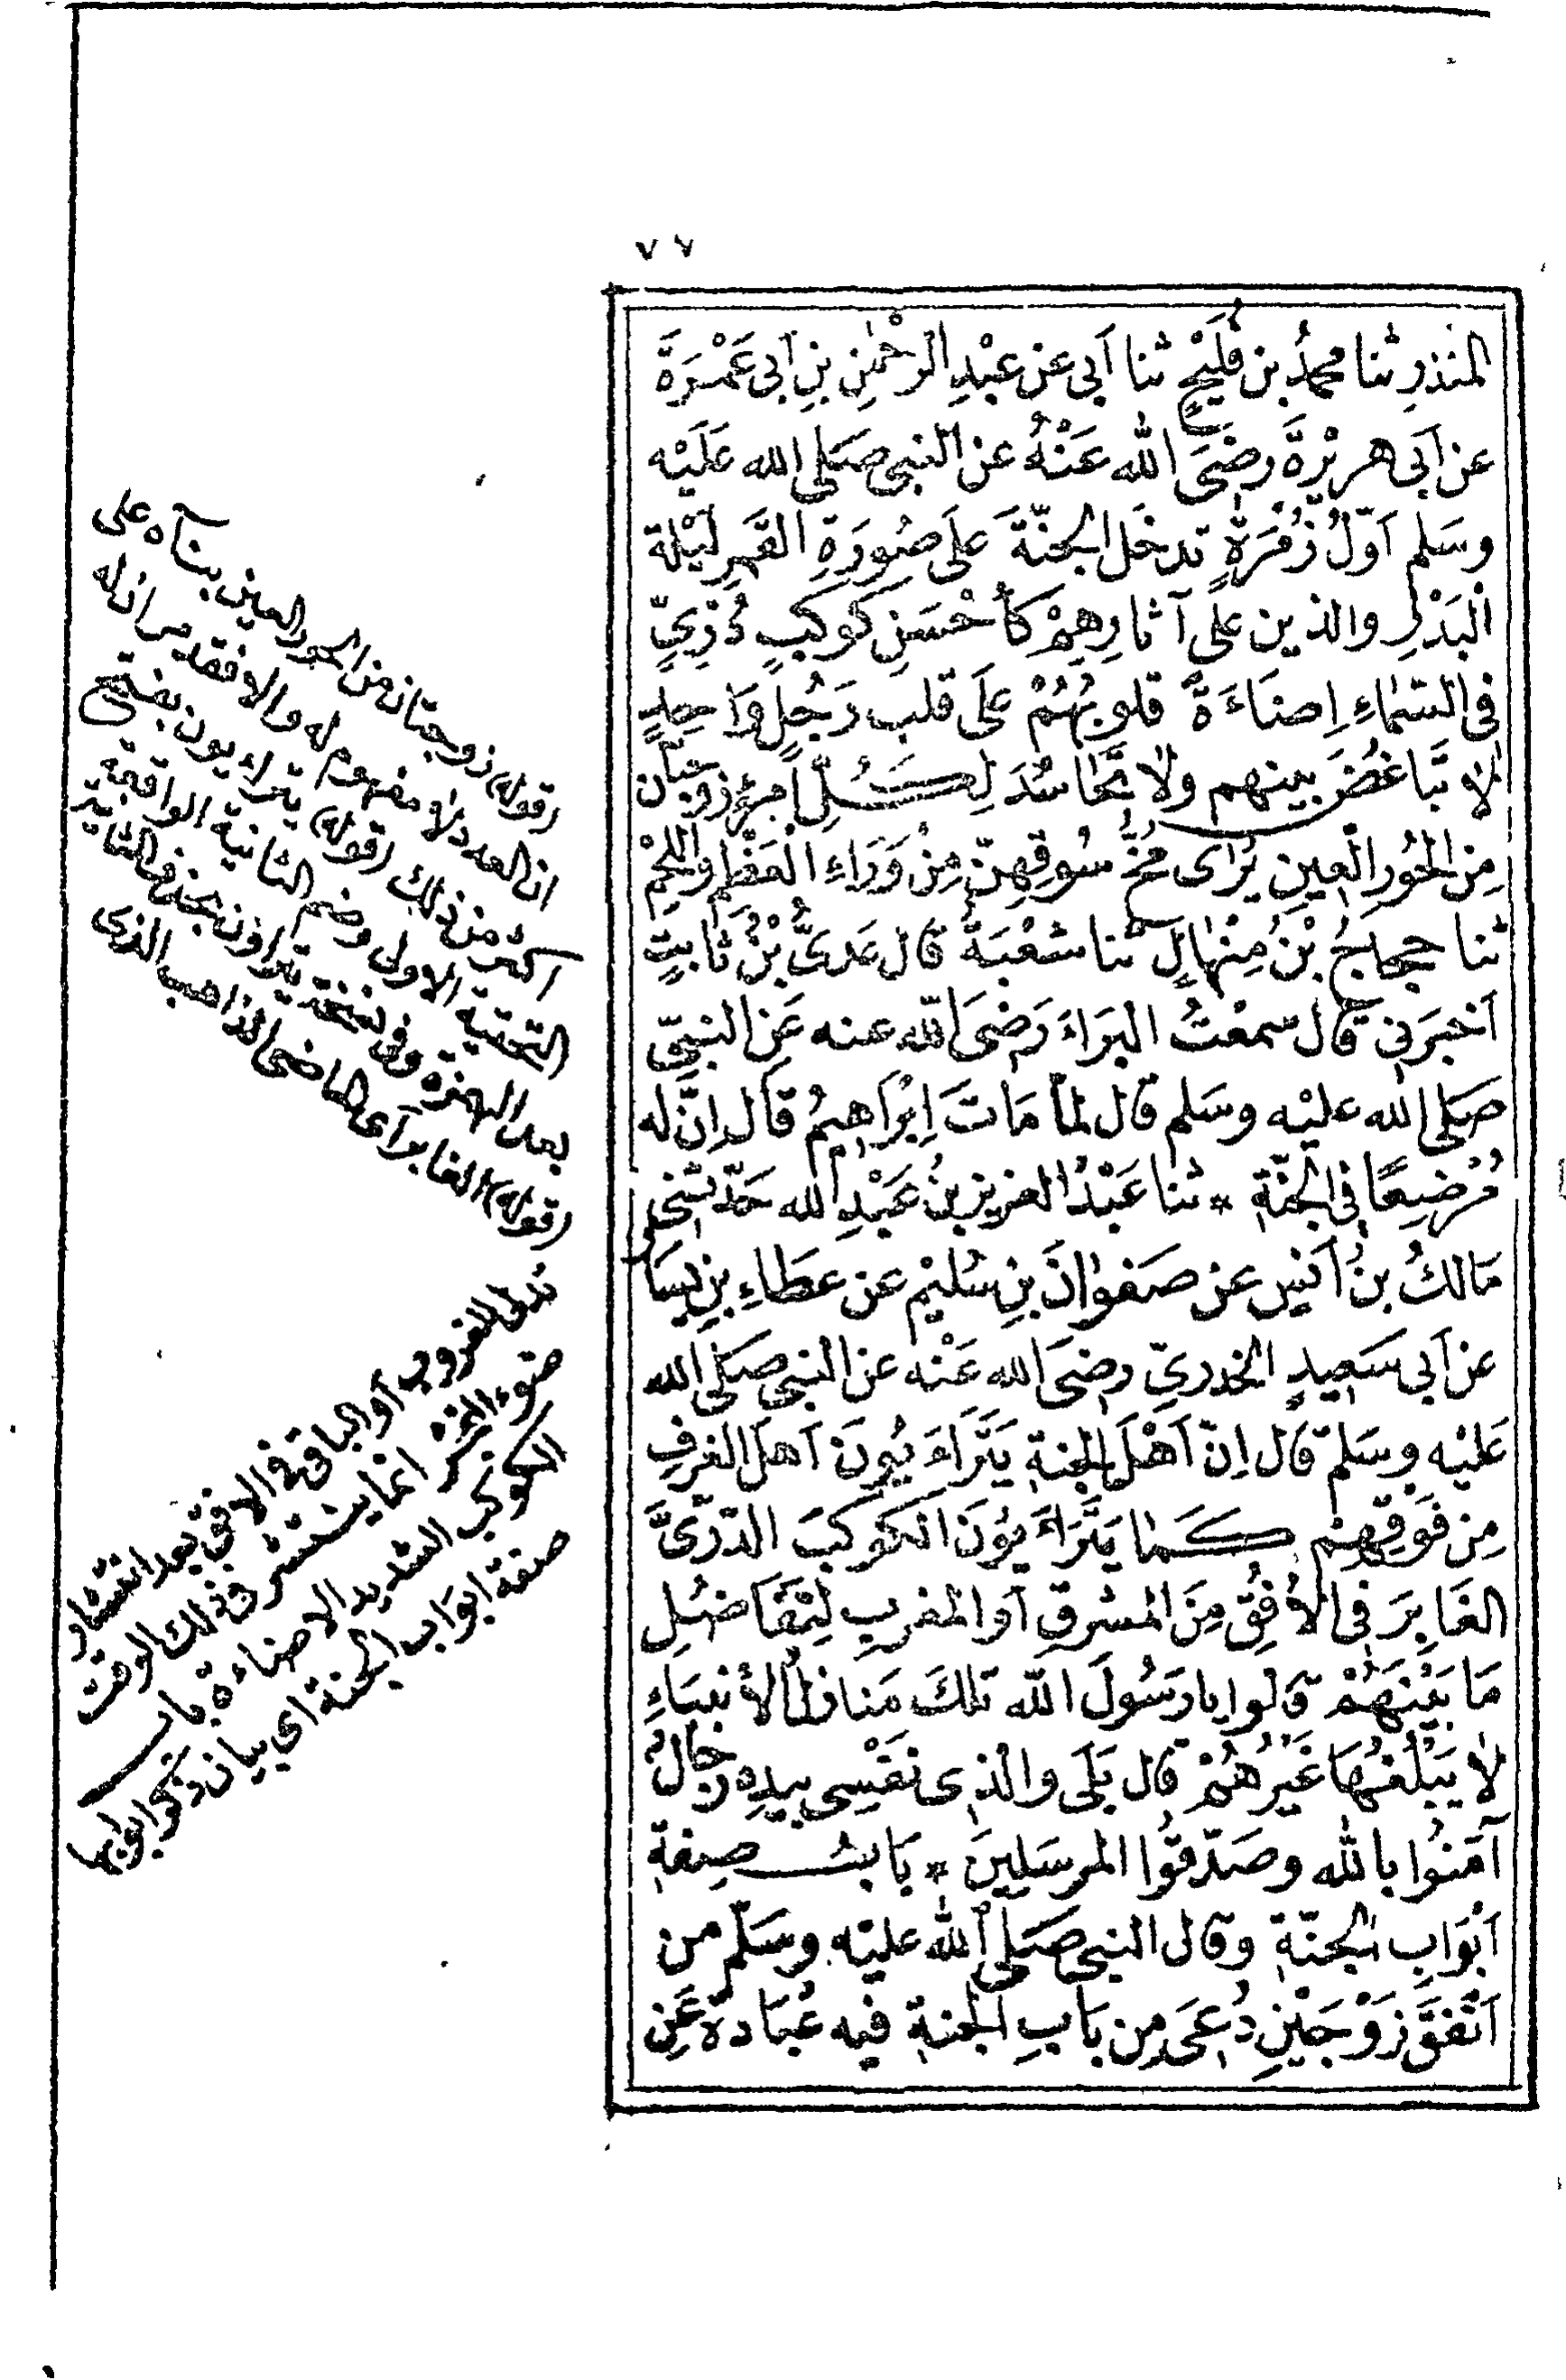 ٧٧
المنذرِ ثنا محمدُ بن فُلَيْحٍ ثنا اَبى عن عبْدِ الرحْمٰنِ بنِ اَبى عَمْرَةَ
عن اَبى هريْرةَ رضىَ الله عَنْهُ عن النبى صَلى الله عَلَيْه
وسَلم اَوّلُ زُمْرَةٍ تدخَل الجنّةَ عَلى صُورَةِ القَمرِ لَيْلةَ
الْبَدْرِ والذين على آثارِهِمْ كأَحْسَنِ كوكبٍ دُرِّىٍّ
فى السّمٰاءِ اِضَاءَةً قلوبُهُمْ عَلَى قلب رَجُلٍ وَاحِدٍ
لا تَبَاغُضَ بينهم ولا تَحَاسُدَ لِكُلِّ امرئٍ زوجتان
مِن الحُورِ العِينِ يُرٰى مُخُّ سُوقِهِنّ مِنْ وَرَاءِ الْعَظْمِ واللحْمْ
ثنا حجاجُ بْنُ مِنْهالٍ ثنا شعْبَةُ قال عَدىُّ بْنُ ثابتٍ
اَخبرَنى قال سمعْتُ البَرَاءَ رَضىَ الله عنه عَن النبىّ
صَلى الله عليْه وسَلم قال لمّا مَاتَ اِبْرَاهيمُ قاَل اِنّ له
مُرْضِعًا فى الجنّةِ * ثنا عَبْدُ العزيز بنُ عَبْدِ الله حَدّثنى
مَالكُ بنُ اَنسٍ عن صَفوٰانَ بنِ سُليْم عن عطَاءِ بنِ يسَارٍ
عن اَبى سَعيدٍ الخدرىِّ رضىَ الله عَنْه عن النبى صَلى الله
عَليْه وسَلمّ قال اِنّ اَهْلَ الجنةِ يَتَرَاءَيُونَ اَهلَ الغرفِ
مِن فَوقِهِمْ كَمٰا يَتَرَاءَيُونَ الكوكبَ الدّرّىَّ
الغَابِرَ فى الأُفُقِ مِنَ المشرقِ اَو المغربِ لِتَفَاضُلِ
مَا بَيْنَهُمْ قالوا يا رَسُولَ الله تلكَ مَنازلُ الأنبياءِ
لا يَبْلُغُهَا غَيْرُهُمْ قال بَلَى والذِى نَفْسِى بيدِه رجالٌ
آمَنُوا بالله وصَدّقُوا المرسَلِينَ * بَابُ صِفةِ
اَبْوَابِ الجنّةِ وقال النبى صَلى الله عليْه وسَلّم من
اَنْفقَ زَوْجَيْنِ دُعىَ مِن بَابِ الجنةِ فيه عُبَادةُ عَنِ
(قوله) زوجتان من الحور العين بناء على
ان العدد لا مفهوم له والا فقد مر ان له
اكثر من ذلك (قوله) يتراءيون بفتح
التحتية الاولى وضم الثانية الواقعة
بعد الهمزة وفى نسخة يتراؤن
(قوله) الغابر اى الماضى الذاهب الذى
تدلى للغروب أو الباقى فى الافق بعد انتشار
ضوء الفجر انما يستنير فى ذلك الوقت
الكوكب الشديد الاضاءة باب
صفة ابواب الجنة اي بيان ذكر ابوابها